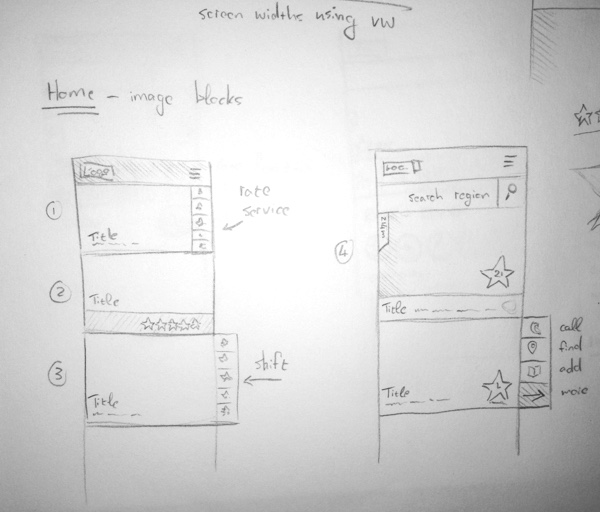 screen widths using vw
Home - image blocks
Logo
1
Title
rate
service
2
Title
3
Title
shift
4
search region
21
Title
Title
1
call
find
add
more